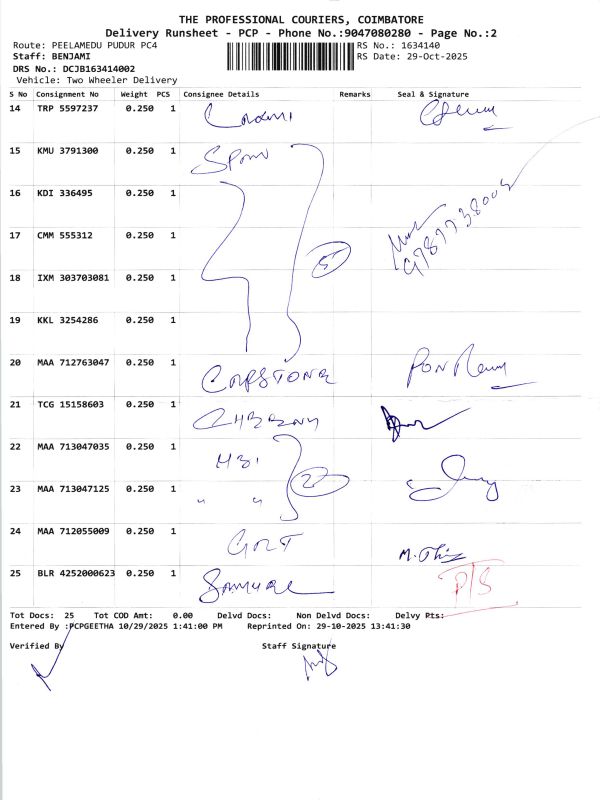 THE PROFESSIONAL COURIERS, COIMBATORE
Delivery Runsheet - PCP - Phone No.:9047080280 - Page No.:2
Route: PEELAMEDU PUDUR PC4 RS No.: 1634140
Staff: BENJAMI RS Date: 29-Oct-2025
DRS No.: DCJB163414002
Vehicle: Two Wheeler Delivery
S No Consignment No Weight PCS Consignee Details Remarks Seal & Signature
14 TRP 5597237 0.250 1
15 KMU 3791300 0.250 1
16 KDI 336495 0.250 1
17 CMM 555312 0.250 1 5
18 IXM 303703081 0.250 1
19 KKL 3254286 0.250 1
20 MAA 712763047 0.250 1 CAPSTONE
21 TCG 15158603 0.250 1
22 MAA 713047035 0.250 1
23 MAA 713047125 0.250 1 " " 2
24 MAA 712055009 0.250 1
25 BLR 4252000623 0.250 1 P/S
Tot Docs: 25 Tot COD Amt: 0.00 Delvd Docs: Non Delvd Docs: Delvy Pts:
Entered By :PCPGEETHA 10/29/2025 1:41:00 PM Reprinted On: 29-10-2025 13:41:30
Verified By Staff Signature